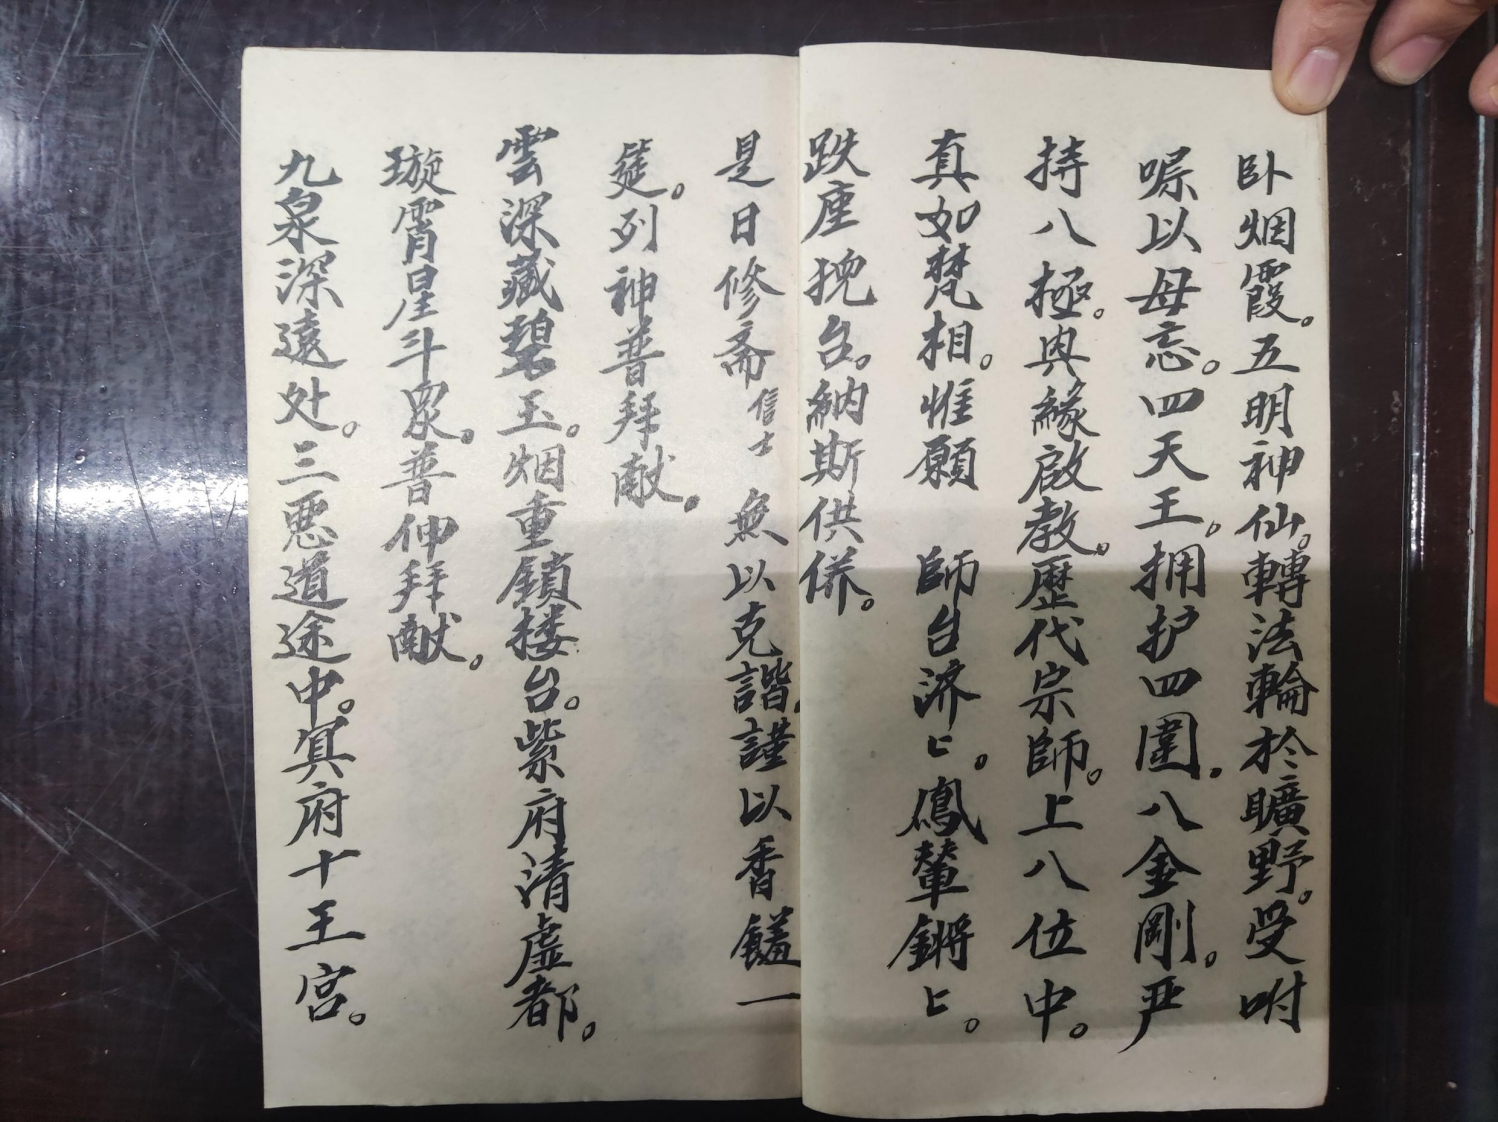 卧烟霞。五明神仙。轉法輪於曠野。受咐
嘱以毋忘。四天王。拥护四圍。八金剛。严
持八極。與緣啟教。歷代宗師。上八位中。
真如梵相。惟願　師台济匕。鳳輦鏘匕。
跌座挽台。納斯供併。
是日修斋信士　無以克諧。謹以香饈一
筵。列神普拜献。
雲深藏碧玉。烟重鎖楼台。紫府清虚都。
璇霄星斗衆。普伸拜献。
九泉深遠处。三悪道途中。冥府十王宮。